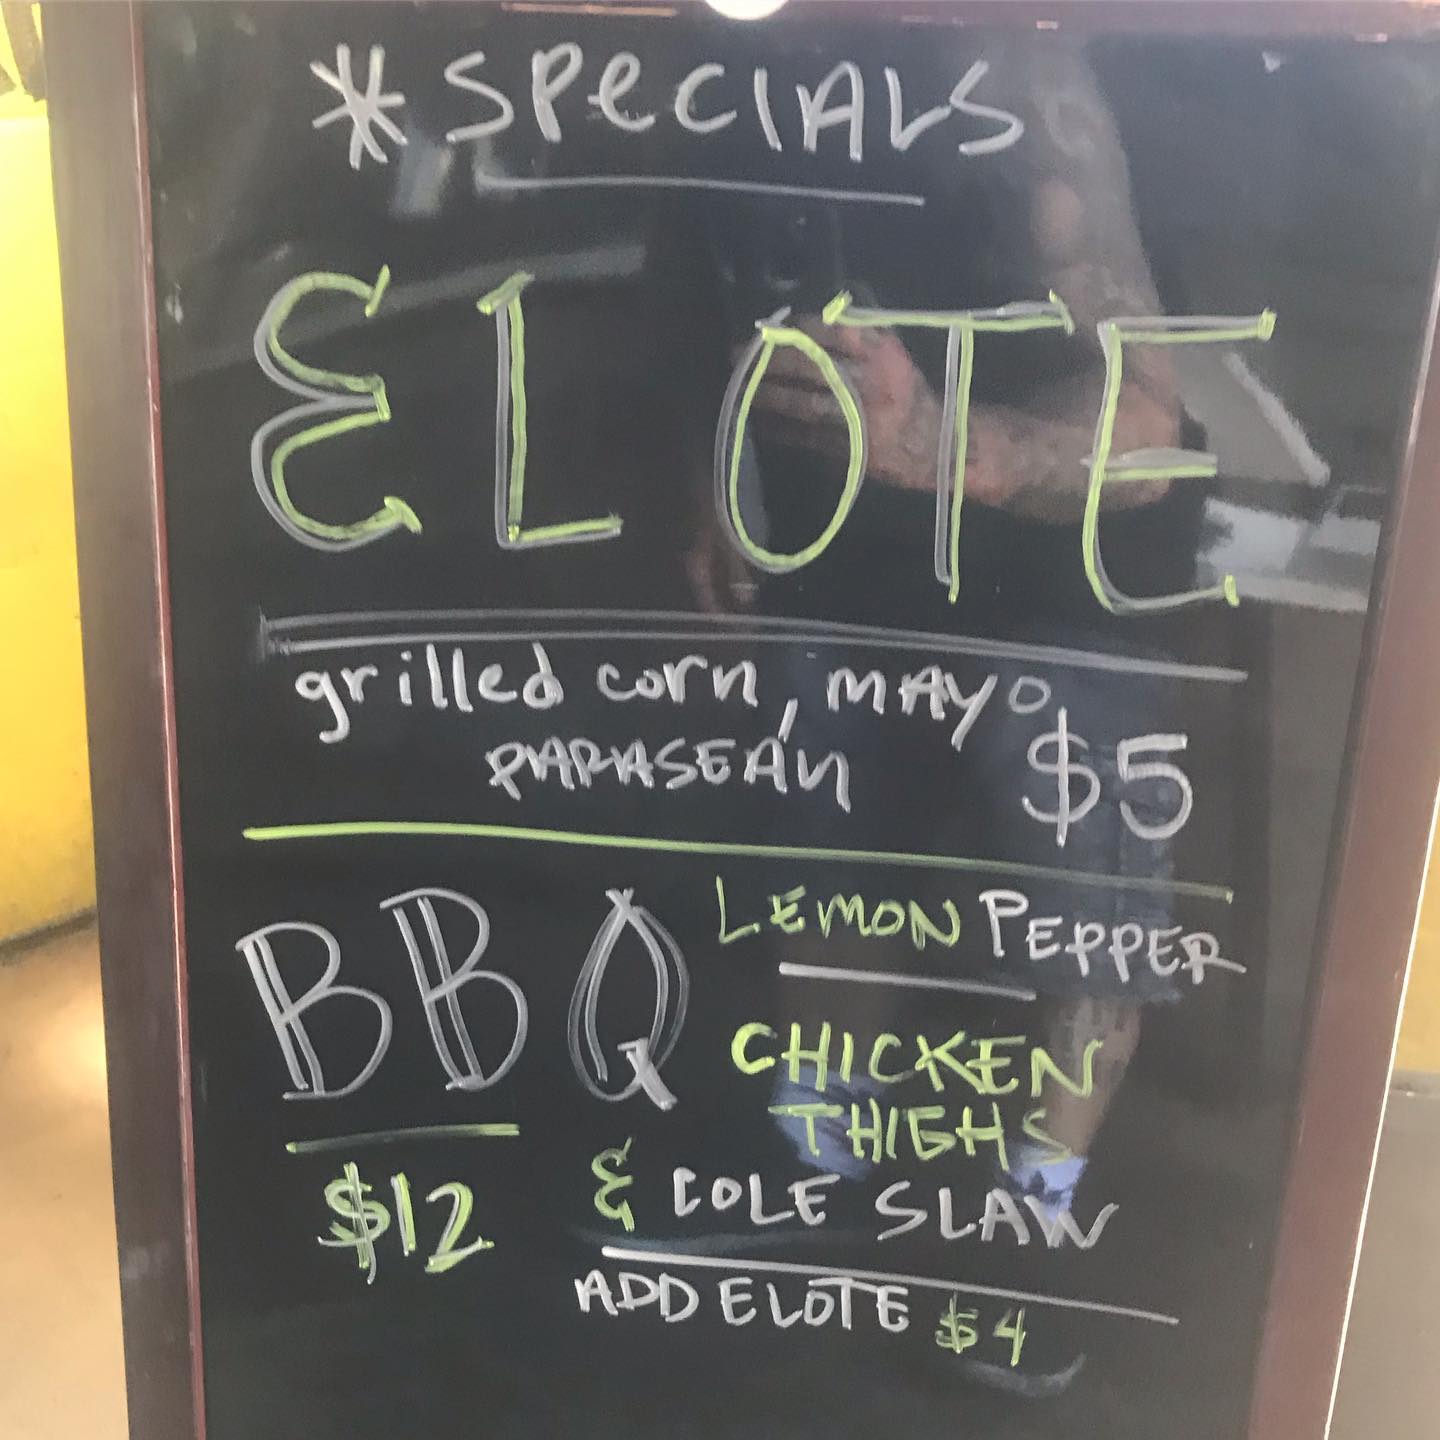 *SPeCIALS
ELOTE
grilled corn, MAYO
PARASEAN $5
BBQ LEMON PEPPER
CHICKEN
THIGHS
$12 & COLE SLAW
ADD ELOTE $4